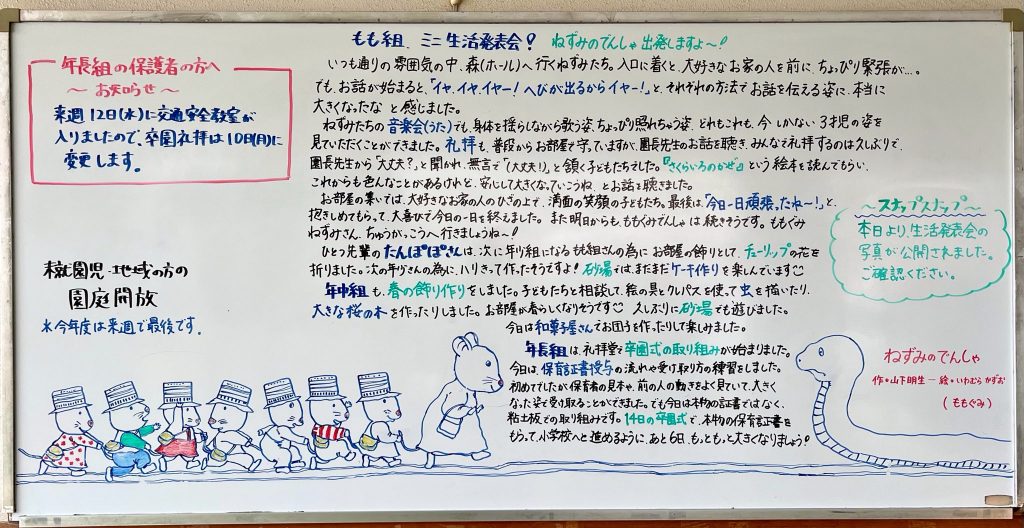 年長組の保護者の方へ
～お知らせ～
来週12日(水)に交通安全教室が
入りましたので、卒園礼拝は10日(月)に
変更します。
未就園児・地域の方の
園庭開放
＊今年度は来週で最後です。
もも組、ミニ生活発表会！ ねずみのでんしゃ出発しますよ～！
いつも通りの雰囲気の中、森(ホール)へ行くねずみたち。入口に着くと、大好きなお家の人を前に、ちょっぴり緊張が…。
でも、お話が始まると、「イヤ、イヤ、イヤー！へびが出るからイヤー！」と、それぞれの方法でお話を伝える姿に、本当に
大きくなったな と感じました。
ねずみたちの音楽会(うた)でも、身体を揺らしながら歌う姿、ちょっぴり照れちゃう姿、どれもこれも、今しかない3才児の姿を
見ていただくことができました。礼拝も、普段からお部屋で守っていますが、園長先生のお話を聴き、みんなで礼拝するのは久しぶりで、
園長先生から"大丈夫?"と聞かれ、無言で「大丈夫!」と頷く子どもたちでした。『さくらいろのかぜ』という絵本を読んでもらい、
これからも色んなことがあるけれど、安心して大きくなっていこうね、とお話を聴きました。
お部屋の集いでは、大好きなお家の人のひざの上で、満面の笑顔の子どもたち。最後は、「今日一日頑張ったね～！」と、
抱きしめてもらって、大喜びで今日の一日を終えました。また明日からも、ももぐみでんしゃは続きそうです。ももぐみ
ねずみさん、ちゅうがっこうへ行きましょうね～！
ひとつ先輩のたんぽぽさんは、次に年少組になるもも組さんの為にお部屋の飾りとして、チューリップの花を
折りました。次の年少さんの為に、ハリきって作ったそうですよ！砂場では、まだまだケーキ作りを楽しんでいます☺
年中組も、春の飾り作りをしました。子どもたちと相談して、絵の具とクレパスを使って虫を描いたり、
大きな桜の木を作ったりしました。お部屋が春らしくなりそうです☺ 久しぶりに砂場でも遊びました。
今日は和菓子屋さんでお団子を作ったりして楽しみました。
年長組は、礼拝堂で卒園式の取り組みが始まりました。
今日は、保育証書授与の流れや受け取り方の練習をしました。
初めてでしたが、保育者の見本や、前の人の動きをよく見ていて、大きく
なった姿で受け取ることができました。でも今日は本物の証書ではなく、
粘土板での取り組みです。14日の卒園式で、本物の保育証書を
もらって、小学校へと進めるように、あと6日、もっともっと大きくなりましょう！
～スナップスナップ～
本日より、生活発表会の
写真が公開されました。
ご確認ください。
ねずみのでんしゃ
作・山下明生ー絵・いわむらかずお
(ももぐみ)